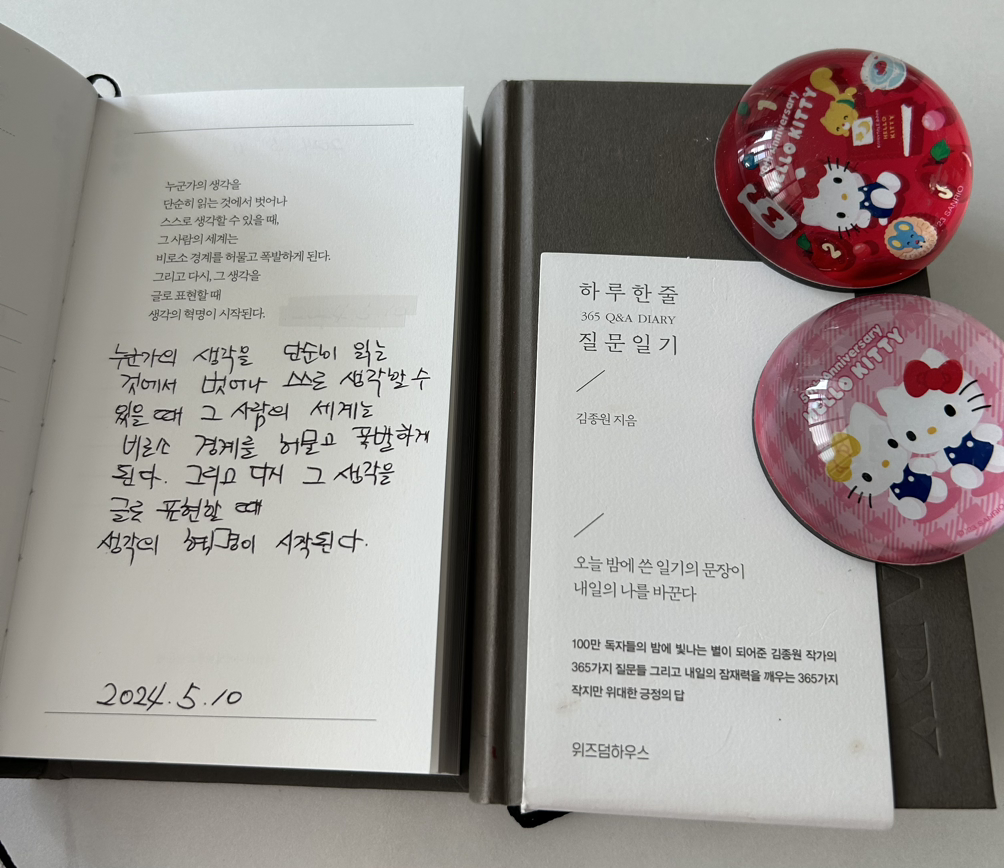 누군가의 생각을
단순히 읽는 것에서 벗어나
스스로 생각할 수 있을 때,
그 사람의 세계는
비로소 경계를 허물고 폭발하게 된다.
그리고 다시, 그 생각을
글로 표현할 때
생각의 혁명이 시작된다.
누군가의 생각을 단순히 읽는
것에서 벗어나 스스로 생각할 수
있을 때 그 사람의 세계는
비로소 경계를 허물고 폭발하게
된다. 그리고 다시 그 생각을
글로 표현할 때
생각의 혁명이 시작된다.
2024.5.10
하루 한 줄
365 Q&A DIARY
질문 일기
김종원 지음
오늘 밤에 쓴 일기의 문장이
내일의 나를 바꾼다
100만 독자들의 밤에 빛나는 별이 되어준 김종원 작가의
365가지 질문들 그리고 내일의 잠재력을 깨우는 365가지
작지만 위대한 긍정의 답
위즈덤하우스
Anniversary
HELLO KITTY
HELLO
KITTY
2
23 SANRIO
50th Anniversary
HELLO KITTY
ADY